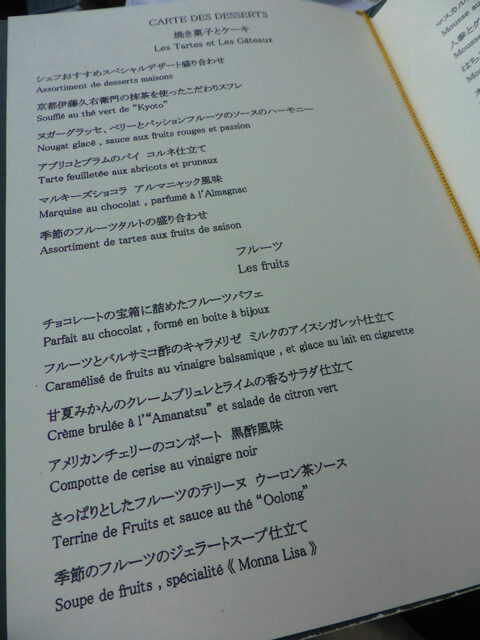 CARTE DES DESSERTS
焼き菓子とケーキ
Les Tartes et Les Gâteaux
シェフおすすめスペシャルデザート盛り合わせ
Assortiment de desserts maisons
京都伊藤久右衛門の抹茶を使ったこだわりスフレ
Soufflé au thé vert de "Kyoto"
ヌガーグラッセ、ベリーとパッションフルーツのソースのハーモニー
Nougat glacé , sauce aux fruits rouges et passion
アプリコとプラムのパイ コルネ仕立て
Tarte feuilletée aux abricots et prunaux
マルキーズショコラ アルマニャック風味
Marquise au chocolat , parfumé à l'Almagnac
季節のフルーツタルトの盛り合わせ
Assortiment de tartes aux fruits de saison
フルーツ
Les fruits
チョコレートの宝箱に詰めたフルーツパフェ
Parfait au chocolat , formé en boite à bijoux
フルーツとバルサミコ酢のキャラメリゼ ミルクのアイスシガレット仕立て
Caramélisé de fruits au vinaigre balsamique , et glace au lait en cigarette
甘夏みかんのクレームブリュレとライムの香るサラダ仕立て
Crème brulée à l'"Amanatsu" et salade de citron vert
アメリカンチェリーのコンポート 黒酢風味
Compotte de cerise au vinaigre noir
さっぱりとしたフルーツのテリーヌ ウーロン茶ソース
Terrine de Fruits et sauce au thé "Oolong"
季節のフルーツのジェラートスープ仕立て
Soupe de fruits , spécialité《 Monna Lisa 》
マスカル
Mousse au
人参と
Mousse
はち
Mo